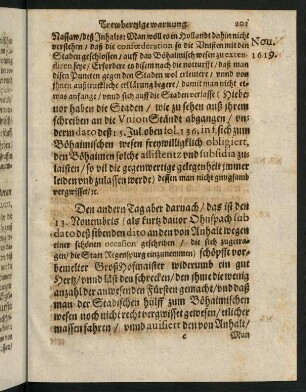 Trewhertzige warnung. 201
Nassaw/ deß Inhalts: Man wöll es in Hollandt dahin nicht
verstehen / daß die confœderation so die Unisten mit den
Staden geschlossen / auff das Böhaimisch wesen zu exten-
diren seye/ Erfordere es demnach die notturfft / daß man
disen Puncten gegen den Staden wol erleutere / vnnd von
ihnen außtruckliche erklärung begere / damit man nicht et-
was anfange / vnnd sich auff die Staden verlasse ( Hiebe-
uor haben die Staden / wie zu sehen auß ihrem
schreiben an die Vnion Ständt abgangen / vn-
derm dato deß 15. Jul. oben fol. 136. in f. sich zum
Böhaimischen wesen freywilliglich obligiert,
den Böhaimen solche assistentz vnd subsidia zu-
laisten / so vil die gegenwertige gelegenheit immer
leiden vnd zulassen werde / dessen man nicht gnugsamb
vergwisset / ꝛc.
Nou.
1619.
Den andern Tag aber darnach / das ist den
13. Nouembris / als kurtz dauor Ohnspach sub
dato deß sibenden dito an den von Anhalt wegen
einer schönen occasion geschriben / die sich zugetra-
gen / die Statt Regenspurg einzunemmen) schöpffte vor-
bemelter GroßHofmaister widerumb ein gut
Hertz / vnnd läst den schrecken / den ihme die wenig
anzahl der anwesenden Fürsten gemacht / vnd daß
man der Stadischen hülff zum Böhaimischen
wesen noch nicht recht vergwisset gewesen / etlicher
massen fahren / vnnd auisiert den von Anhalt /
c Man